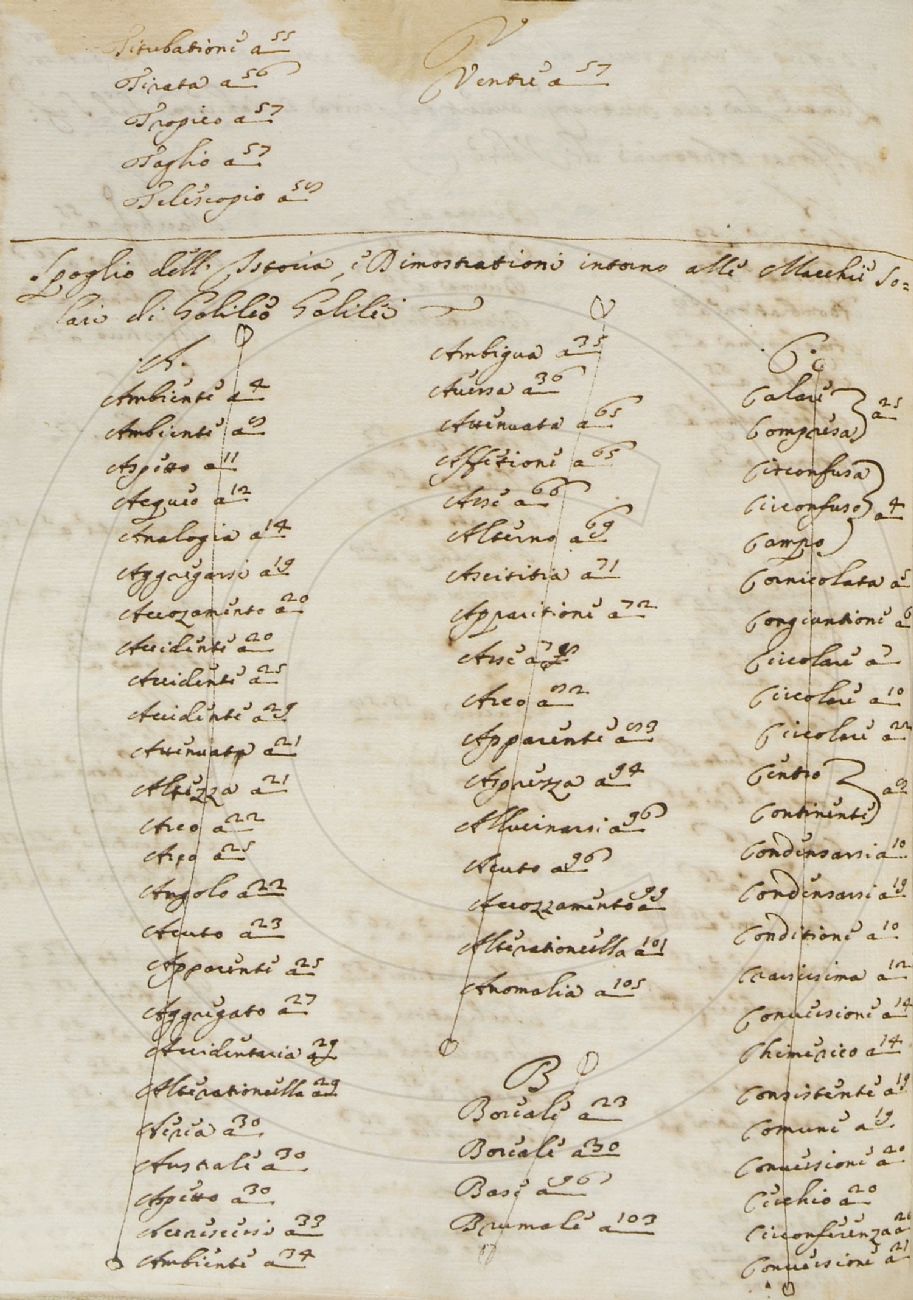 Titubatione a 55
Tirata a 56
Tropico a 57
Taglio a 57
Telescopio a 58
V
Ventre a 57
Spoglio dell' Istoria, e Dimostrationi intorno alle Macchie So=
lari di Galileo Galilei
A.
Ambiente a 4
Ambiente a 8
Aspetto a 11
Acqueo a 12
Analogia a 14
Aggregarsi a 19
Accozamento a 20
Accidente a 20
Accidente a 25
Accidente a 29
Attenuata a 21
Altezza a 21
Arco a 22
Arco a 25
Angolo a 22
Acuto a 23
Apparente a 25
Aggregato a 27
Accidentaria a 29
Alterationcella a 29
Aerea a 30
Australe a 30
Aspetto a 30
Accrescersi a 33
Ambiente a 34
Ambigua a 35
Aversa a 36
Attenuata a 65
Affetione a 65
Asse a 66
Alterno a 69
Ascititia a 71
Apparitione a 72
Asse a 78
Arco a 82
Apparente a 83
Asprezza a 94
Allucinarsi a 96
Acuto a 96
Accozzamento a 99
Alterationcella a 101
Anomalia a 105
B
Boreale a 23
Boreale a 30
Base a 96
Brumale a 103
C.
Calare
Compresa a 25
Circonfusa
Circonfuso a 4
Campo
Cornicolata a 5
Congiuntione a 6
Circolare a 7
Circolare a 10
Circolare a 22
Centro
Continente a 9
Condensarsi a 10
Condensarsi a 19
Conditione a 10
Crassissima a 12
Conversione a 14
Chimerico a 14
Consistente a 19
Comune a 19.
Conversione a 20
Cerchio a 20
Circonferenza a 21
Conversione a 21